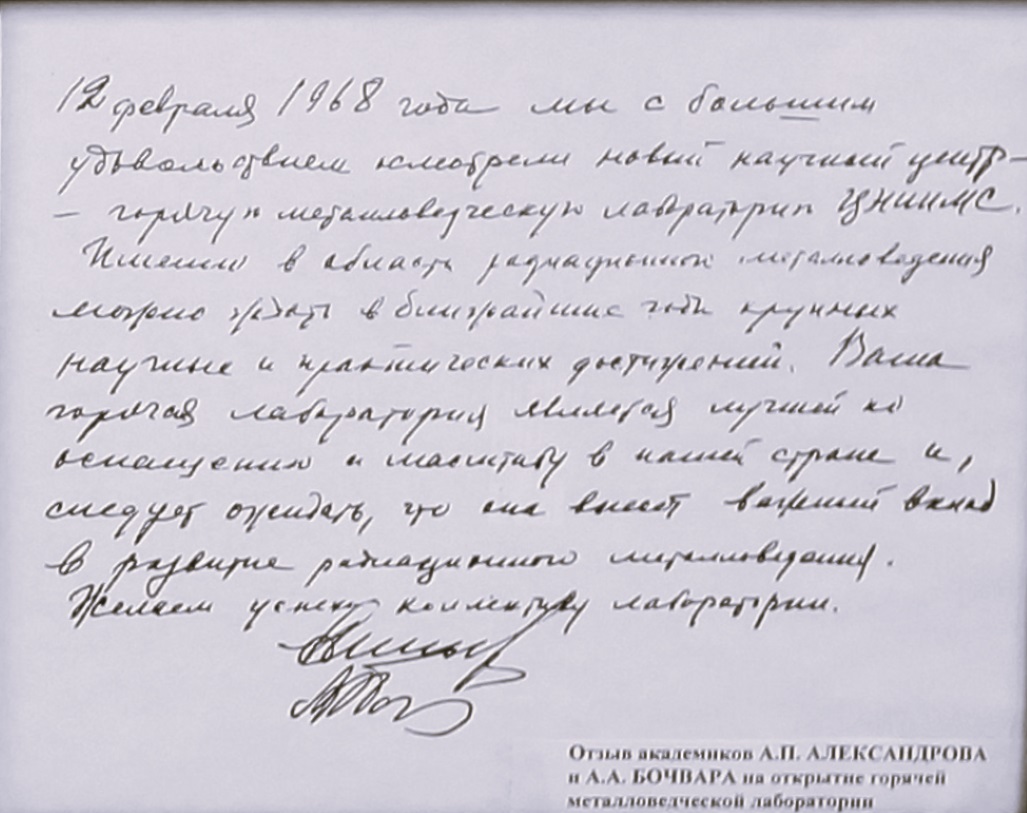 12 февраля 1968 года мы с большим
удовольствием осмотрели новый научный центр –
– горячую металловедческую лабораторию ЦНИИМС.
Именно в области радиационного металловедения
можно ждать в ближайшие годы крупных
научных и практических достижений. Ваша
горячая лаборатория является лучшей по
оснащению и масштабу в нашей стране и,
следует ожидать, что она внесет важный вклад
в развитие радиационного металловедения.
Желаем успеху коллективу лаборатории.
Отзыв академиков А.П. АЛЕКСАНДРОВА
и А.А. БОЧВАРА на открытие горячей
металловедческой лаборатории